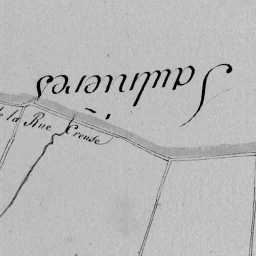 Saulnieres
de la Rue Creuse